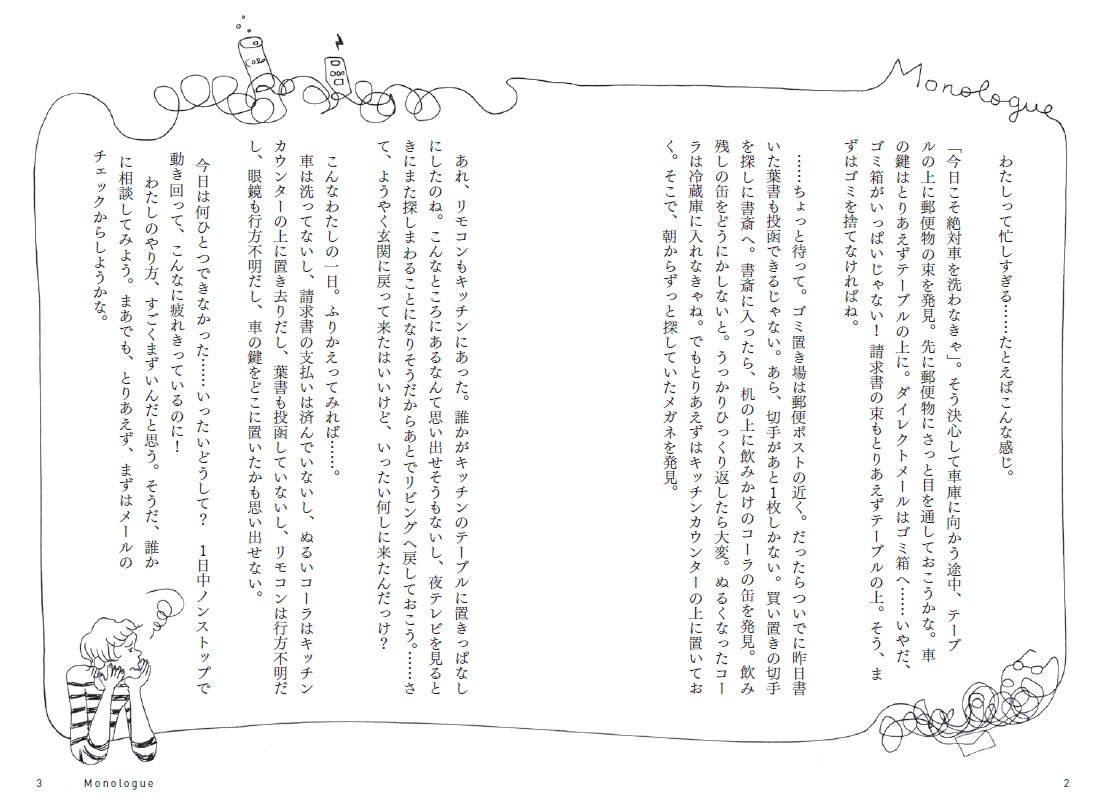 Monologue
わたしって忙しすぎる……たとえばこんな感じ。
「今日こそ絶対車を洗わなきゃ」。そう決心して車庫に向かう途中、テーブ
ルの上に郵便物の束を発見。先に郵便物にさっと目を通しておこうかな。車
の鍵はとりあえずテーブルの上に。ダイレクトメールはゴミ箱へ……いやだ、
ゴミ箱がいっぱいじゃない！ 請求書の束もとりあえずテーブルの上。そう、ま
ずはゴミを捨てなければね。
……ちょっと待って。ゴミ置き場は郵便ポストの近く。だったらついでに昨日書
いた葉書も投函できるじゃない。あら、切手があと1枚しかない。買い置きの切手
を探しに書斎へ。書斎に入ったら、机の上に飲みかけのコーラの缶を発見。飲み
残しの缶をどうにかしないと。うっかりひっくり返したら大変。ぬるくなったコー
ラは冷蔵庫に入れなきゃね。でもとりあえずはキッチンカウンターの上に置いてお
く。そこで、朝からずっと探していたメガネを発見。
2
Cola
あれ、リモコンもキッチンにあった。誰かがキッチンのテーブルに置きっぱなし
にしたのね。こんなところにあるなんて思い出せそうもないし、夜テレビを見ると
きにまた探しまわることになりそうだからあとでリビングへ戻しておこう。……さ
て、ようやく玄関に戻って来たはいいけど、いったい何しに来たんだっけ？
こんなわたしの一日。ふりかえってみれば……。
車は洗ってないし、請求書の支払いは済んでいないし、ぬるいコーラはキッチン
カウンターの上に置き去りだし、葉書も投函していないし、リモコンは行方不明だ
し、眼鏡も行方不明だし、車の鍵をどこに置いたかも思い出せない。
今日は何ひとつできなかった……いったいどうして？ 1日中ノンストップで
動き回って、こんなに疲れきっているのに！
わたしのやり方、すごくまずいんだと思う。そうだ、誰か
に相談してみよう。まあでも、とりあえず、まずはメールの
チェックからしようかな。
3 Monologue